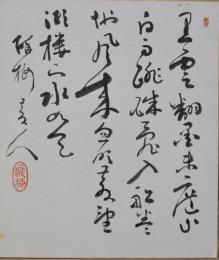 黒雲翻墨未遮山
白雨跳珠乱入船巻
地風来忽吹散望
湖楼下水如天